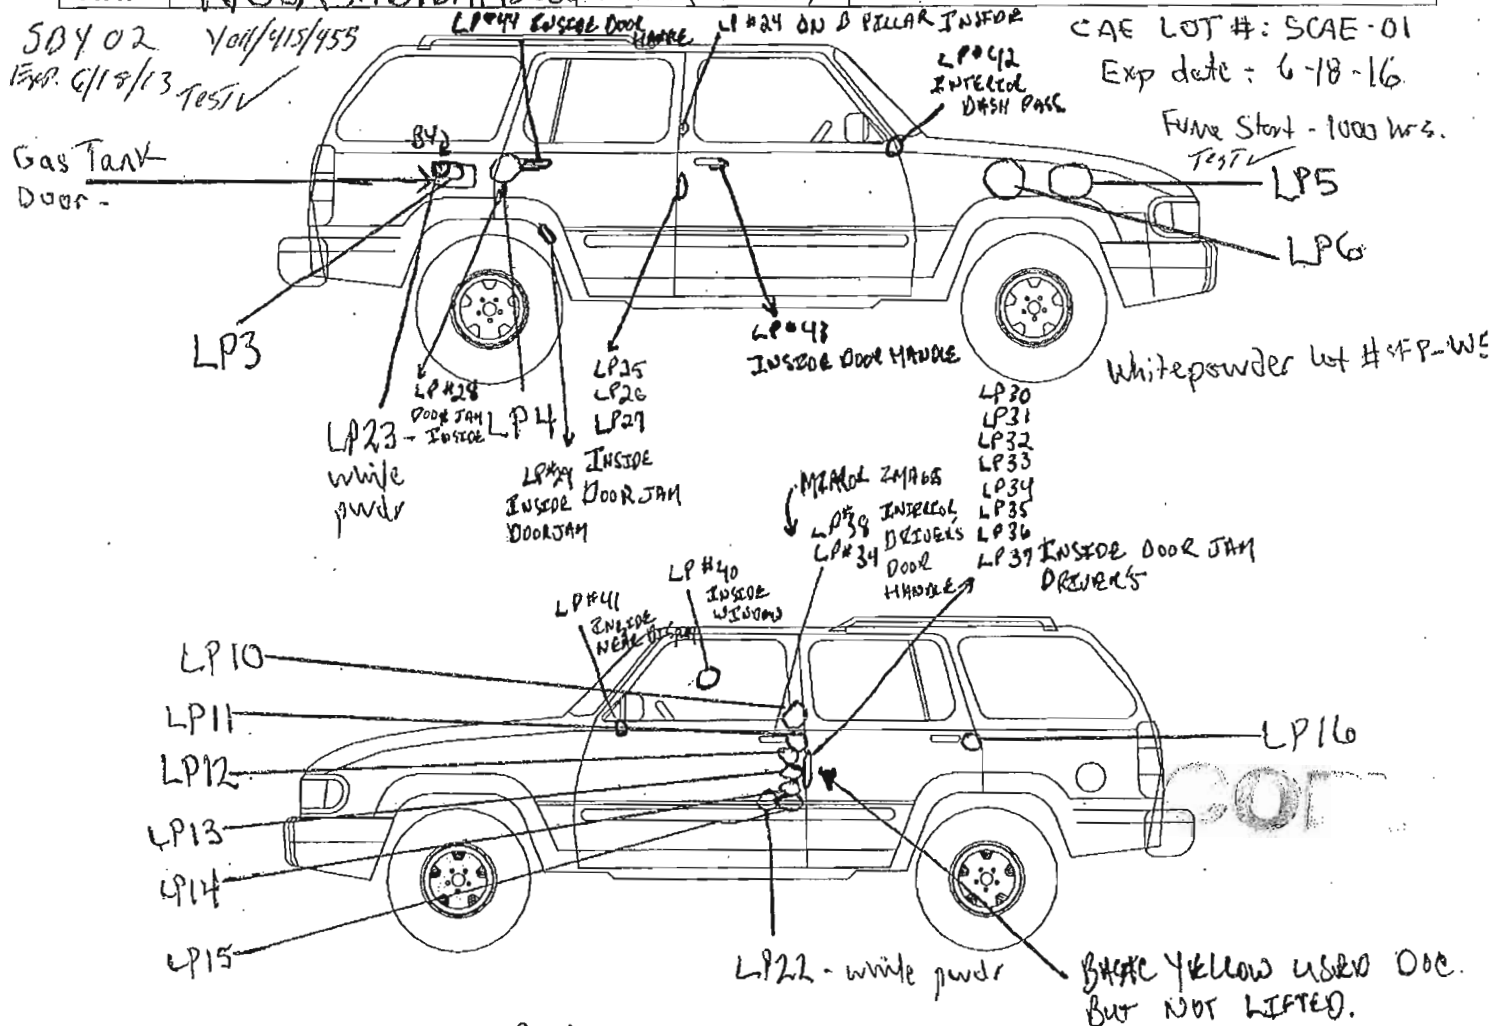 LP#44 INSIDE DOOR
HANDLE
LP#24 ON B PILLAR INSIDE
SBY 02
Exp. 6/18/13 Test✓
CAE LOT #: SCAE-01
Exp date: 6-18-16
Fume Start - 1000 hrs.
Test✓
LP#42
INTERIOR
DASH PASS
Gas Tank
Door -
LP5
LP6
LP3
LP#43
INSIDE DOOR HANDLE
Whitepowder Lot #SFP-W
LP#28
DOOR JAM
INSIDE
LP4
LP23 -
white
pwdr
LP25
LP26
LP27
INSIDE
DOOR JAM
LP#29
INSIDE
DOORJAM
LP30
LP31
LP32
LP33
LP34
LP35
LP36
LP37 INSIDE DOOR JAM
DRIVER'S
MIRROR IMAGE
LP#38
LP#34
INTERIOR
DRIVER'S
DOOR
HANDLE
LP#40
INSIDE
WINDOW
LP#41
INSIDE
NEAR
LP10
LP11
LP12
LP13
LP14
LP15
LP16
LP22 - white pwdr
BASIC YELLOW USED DOC.
BUT NOT LIFTED.